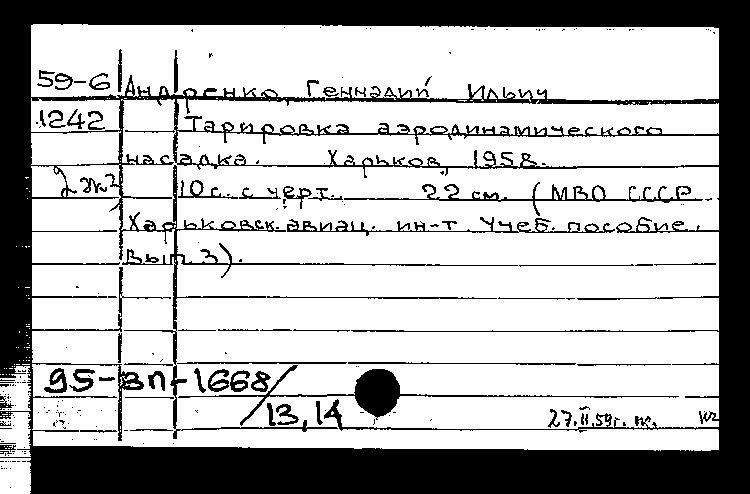 59-6 Андренко, Геннадий Ильич
1242 Тарировка аэродинамического
насадка. Харьков, 1958.
2 экз 10с. с черт. 22 см. (МВО СССР
Харьковск. авиац. ин-т. Учеб. пособие.
Вып. 3).
95-вп-1668/13,14
27.II.59г.